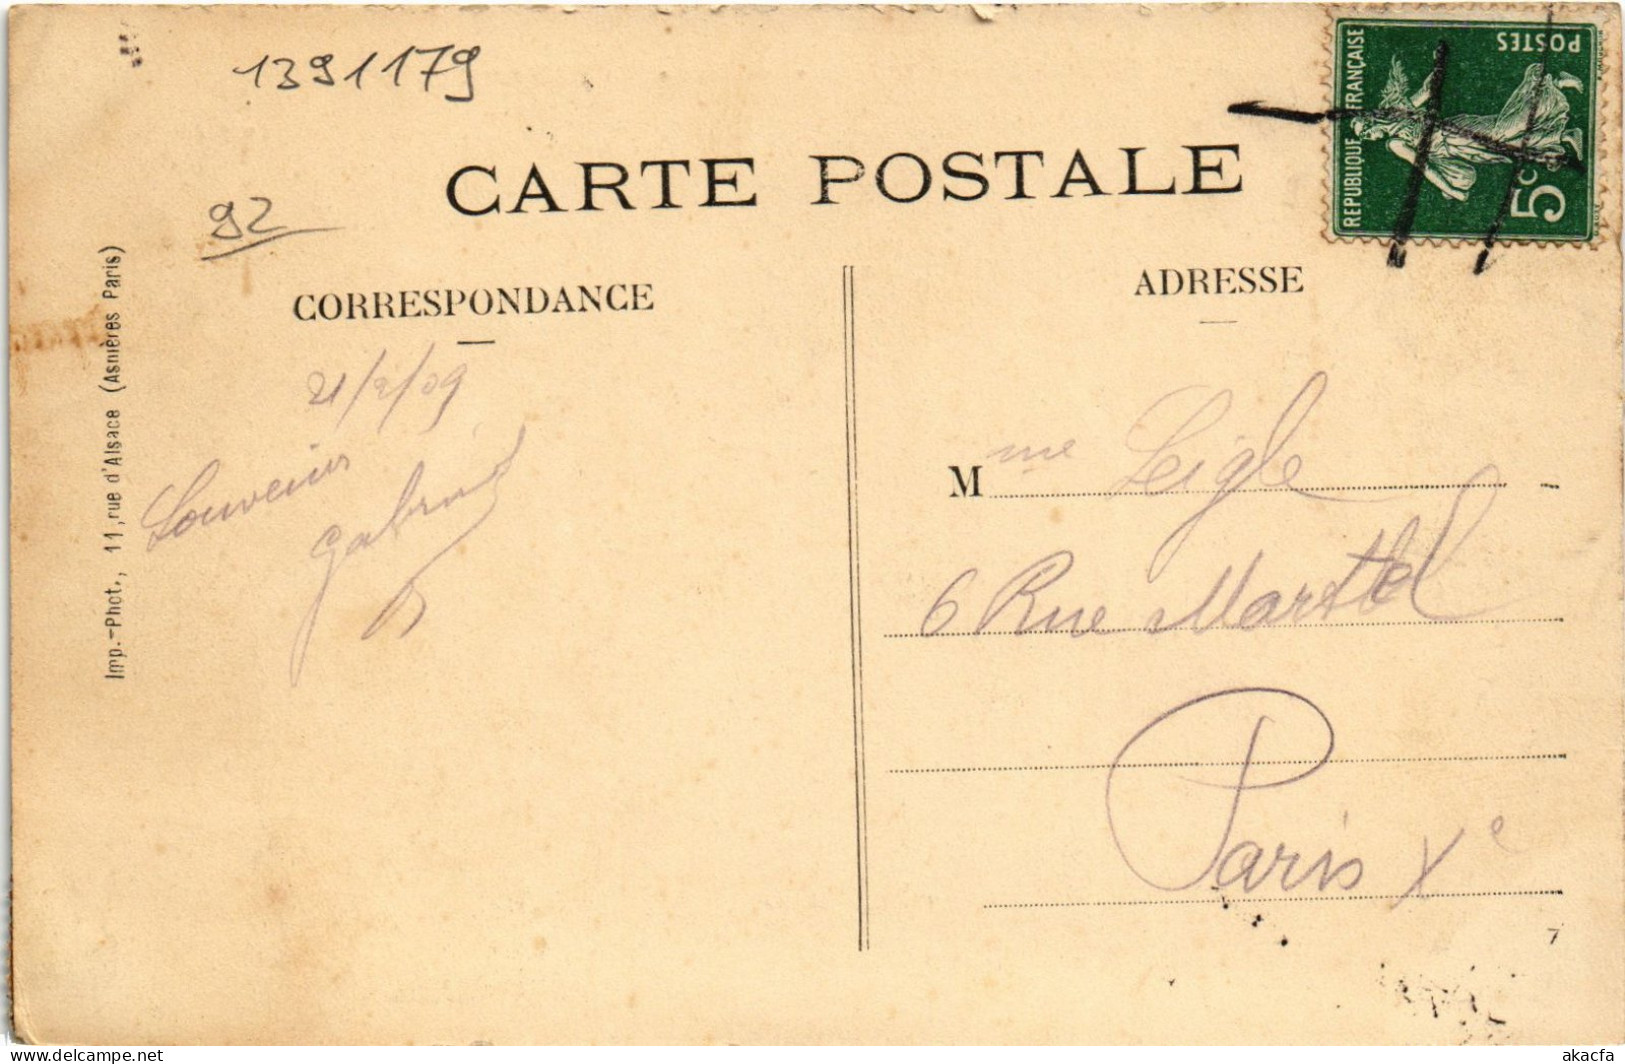 1391179
92
CARTE POSTALE
REPUBLIQUE FRANÇAISE
POSTES
5c
CORRESPONDANCE
ADRESSE
Imp.-Phot., 11, rue d'Alsace (Asnières Paris)
21/2/09
Souvenirs
M me Leigle
6 Rue Martel
Paris Xe
7
delcampe.net
akacfa